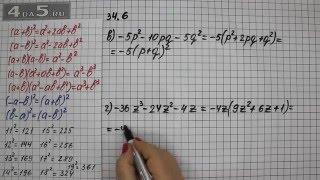 4DA5.RU
(a+b)²=a²+2ab+b²
(a-b)²=a²-2ab+b²
(a-b)(a+b)=a²-b²
(a-b)(a²+ab+b²)=a³-b³
(a+b)(a²-ab+b²)=a³+b³
(-a-b)²=(a+b)²
(b-a)²=(a-b)²
11²=121 15²=225
12²=144 16²=256
13²=169 17²=289
14²=196 18²=324
19²=361
34.6
в) -5p²-10pq-5q²=-5(p²+2pq+q²)=
=-5(p+q)²
г) -36z³-24z²-4z=-4z(9z²+6z+1)=
=-4